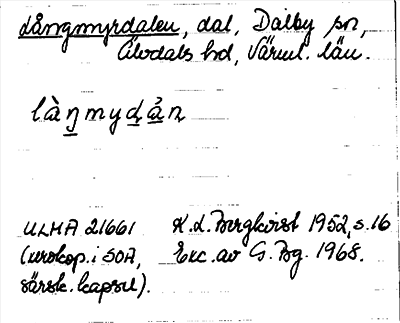 Långmyrdalen, dal, Dalby sn,
Älvdals hd, Värml. län.
làŋmyḍa̱ṇ
ULMA 21661 K.L. Bergkvist 1952, s. 16
(xerokop. i SOA, Exc. av G. Bg. 1968.
särsk. kapsel).